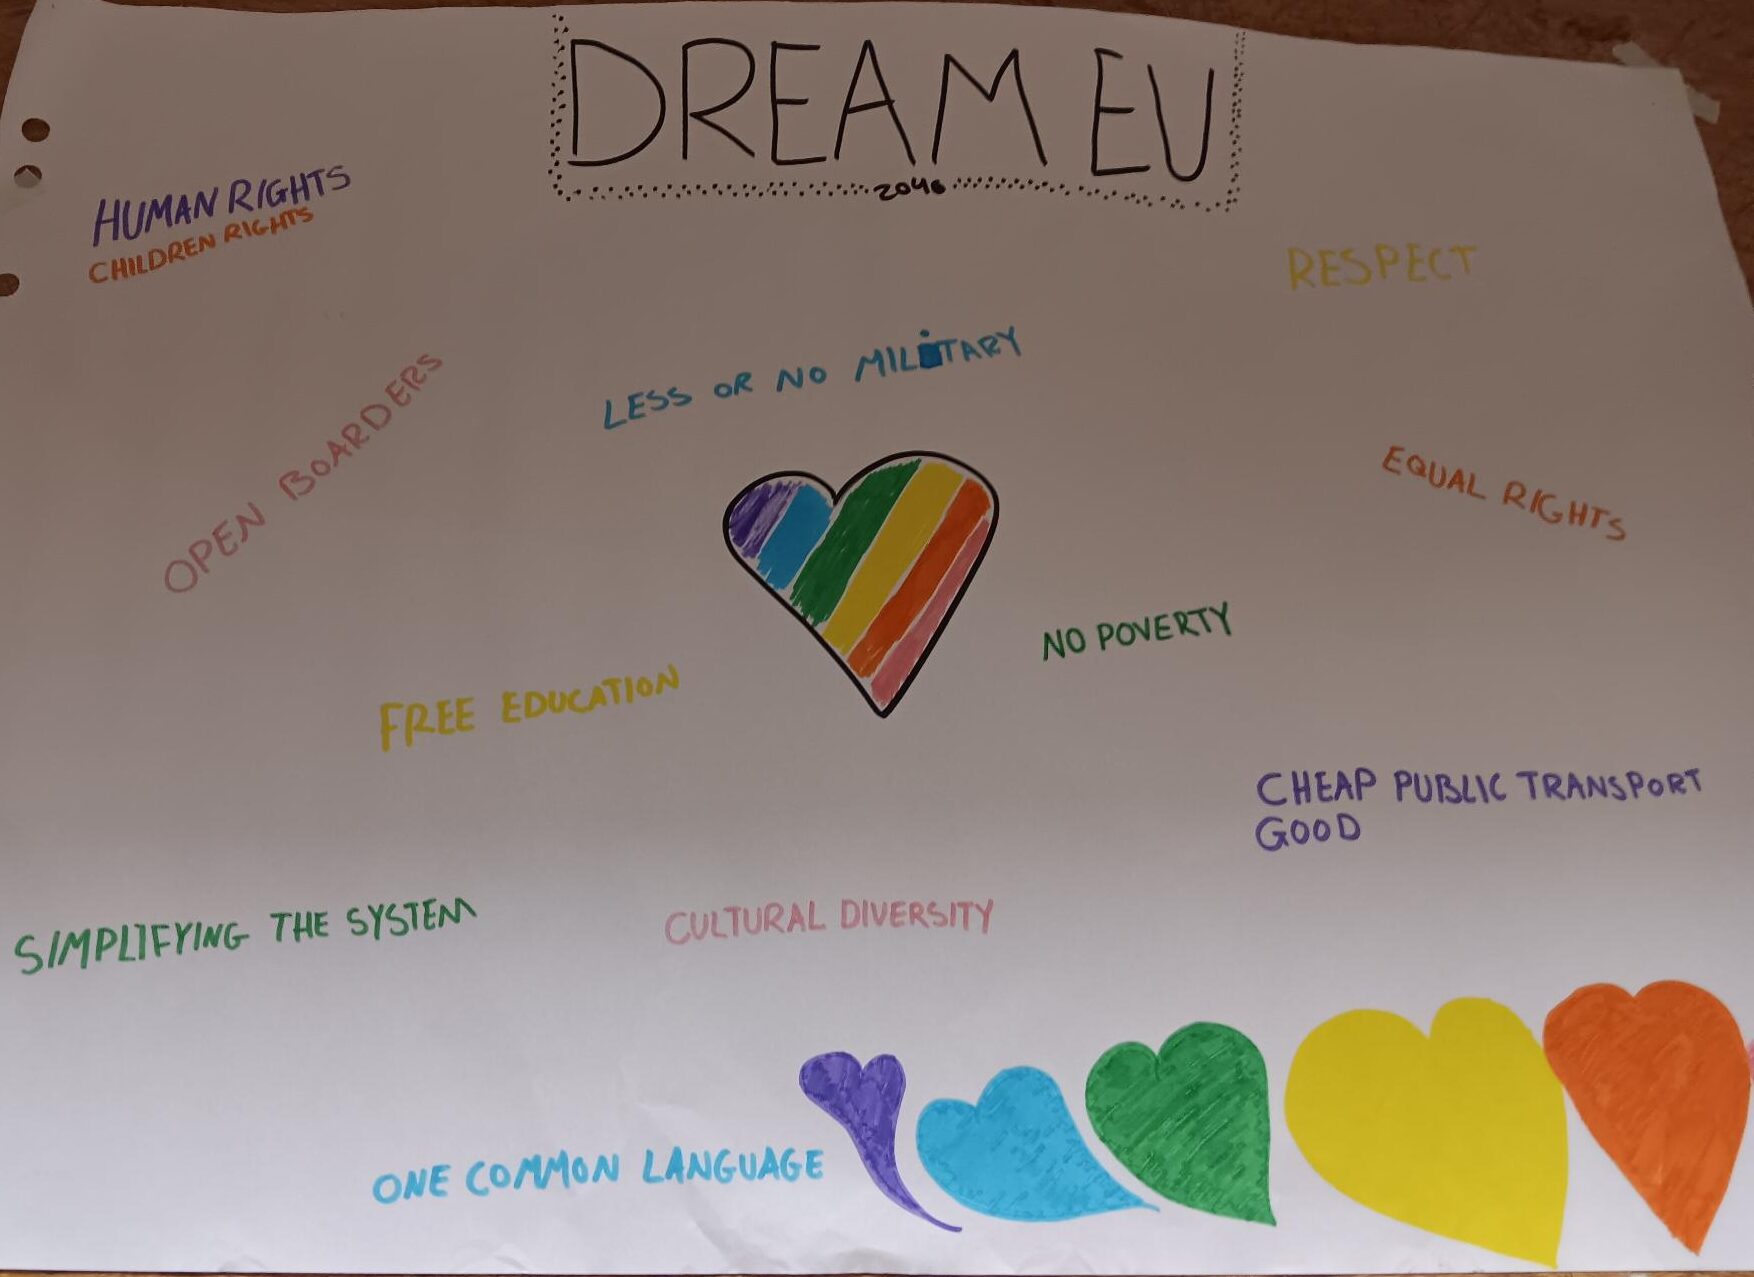 DREAM EU
2046
HUMAN RIGHTS
CHILDREN RIGHTS
RESPECT
LESS OR NO MILITARY
OPEN BOARDERS
EQUAL RIGHTS
NO POVERTY
FREE EDUCATION
CHEAP PUBLIC TRANSPORT
GOOD
SIMPLIFYING THE SYSTEM
CULTURAL DIVERSITY
ONE COMMON LANGUAGE